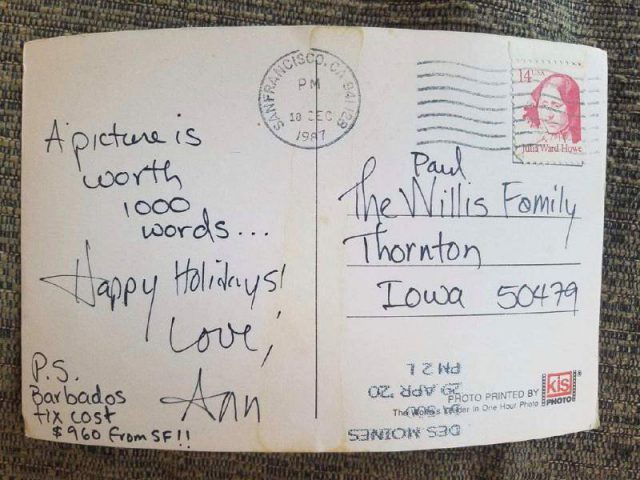 A picture is
worth
1000
words...
Happy Holidays!
Love,
Ann
P.S.
Barbados
tix cost
$960 from SF!!
SAN FRANCISCO, CA 941
PM
18 DEC
1987
14 USA
Julia Ward Howe
Paul
The Willis Family
Thornton
Iowa 50479
PM 2 L
29 APR '20
DES MOINES
PHOTO PRINTED BY
The World's Leader in One Hour Photo
kis
PHOTO